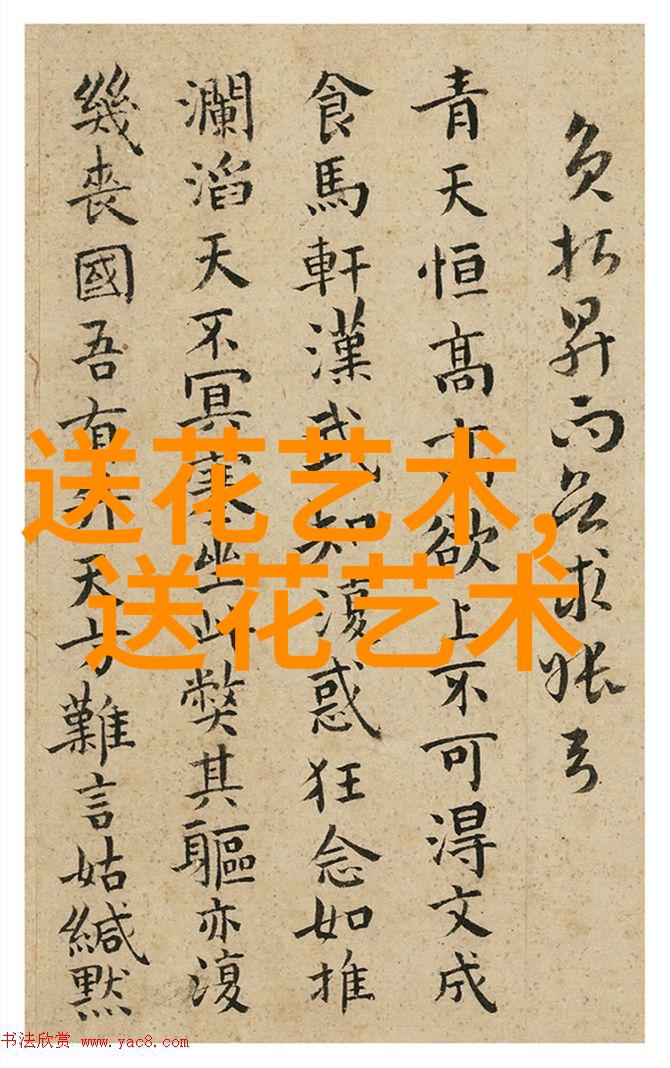 昇而求
青天恒高欲上不可淂文成
食馬軒漢武知復惑狂念如推
瀾滔天不冥坐此弊其軀亦復
幾喪國吾有天方難言姑緘默
送花艺术,
送花艺术
书法欣赏 www.yac8.com